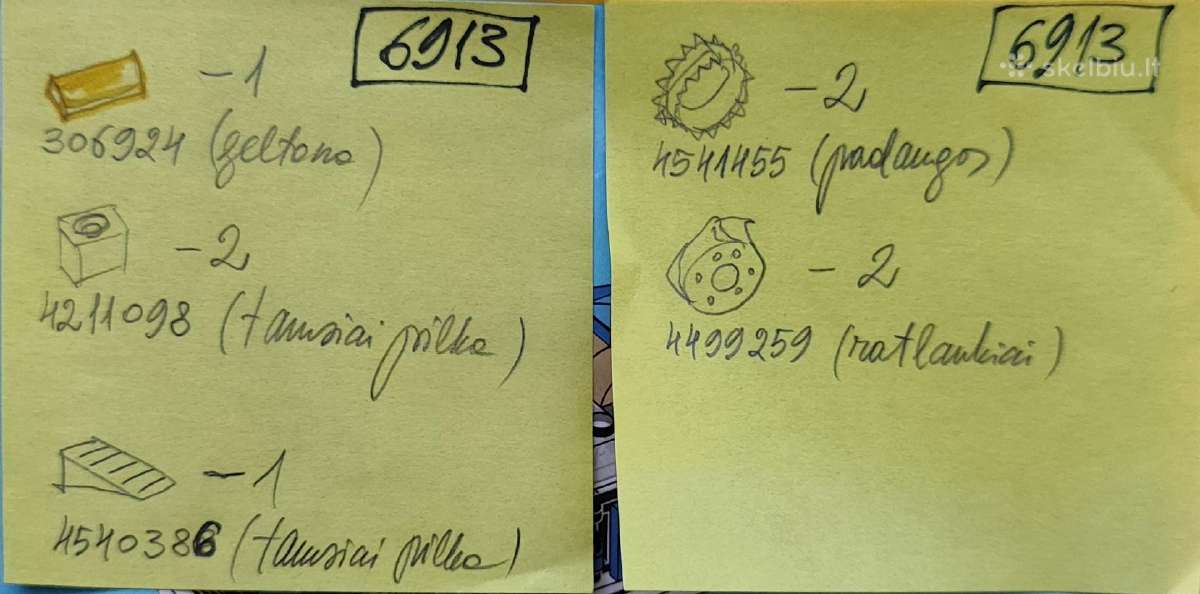 6913
- 1
306924 (geltona)
- 2
4211098 (tamsiai pilka)
- 1
4540386 (tamsiai pilka)
6913
skelbiu.lt
- 2
4541455 (padangos)
- 2
4499259 (ratlankiai)